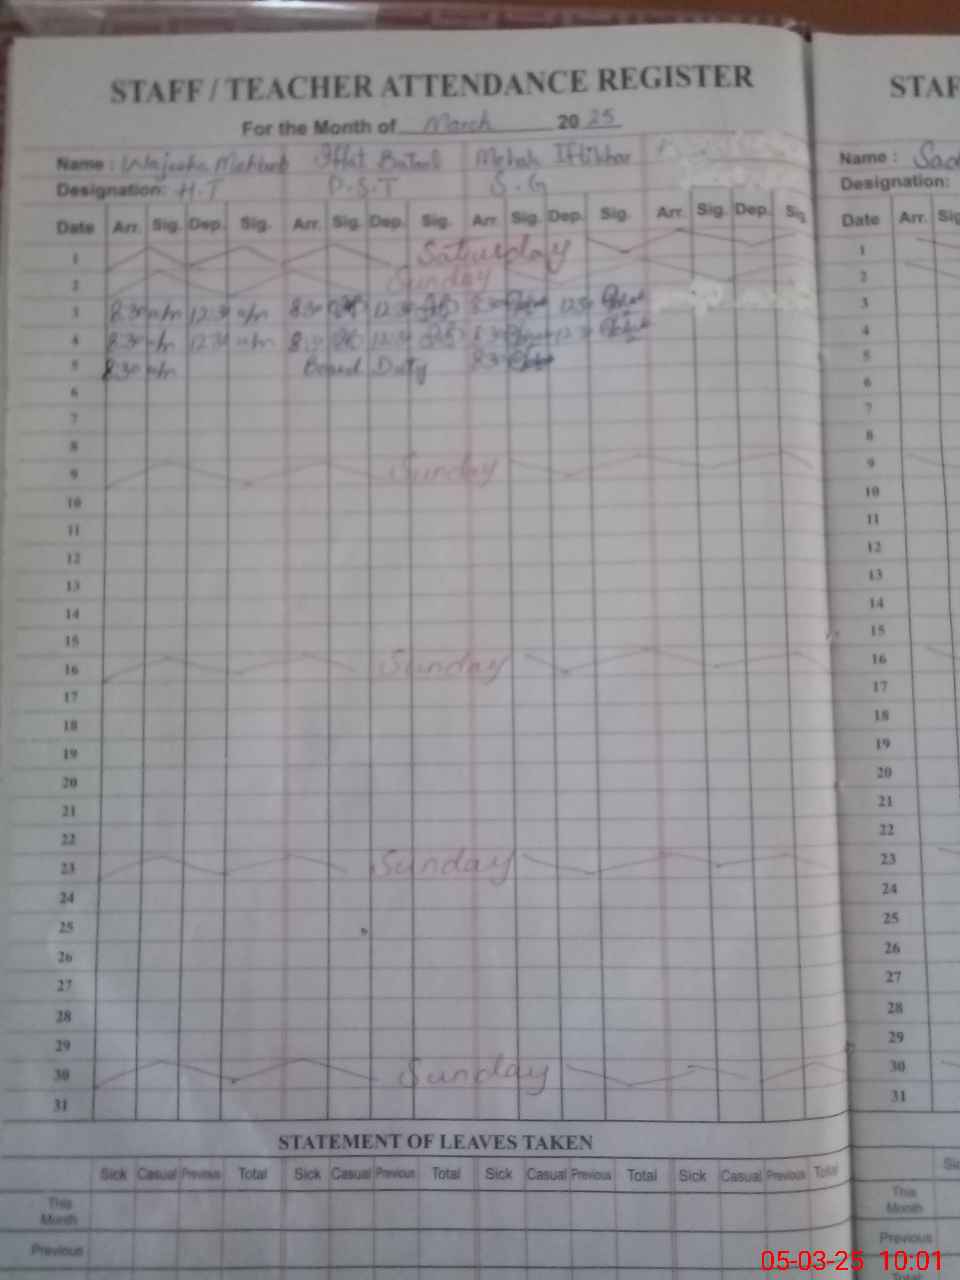 STAFF / TEACHER ATTENDANCE REGISTER
For the Month of March 20 25
Name : Wajeeha Mehtab Iffat Batool Mehak Iftikhar
Designation: H.T P.S.T S.G
Date Arr. Sig. Dep. Sig. Arr. Sig. Dep. Sig. Arr. Sig. Dep. Sig. Arr. Sig. Dep. Sig
1 Saturday
2 Sunday
3 8:30 12:30 8:30 12:30 8:30 12:30
4 8:30 12:30 8:30 12:30 8:30 12:30
5 8:30 Board Duty 8:30
6
7
8
9 Sunday
10
11
12
13
14
15
16 Sunday
17
18
19
20
21
22
23 Sunday
24
25
26
27
28
29
30 Sunday
31
STATEMENT OF LEAVES TAKEN
Sick Casual Previous Total Sick Casual Previous Total Sick Casual Previous Total Sick Casual Previous Total
This
Month
Previous
STAF
Name : Sad
Designation:
Date Arr. Sig
1
2
3
4
5
6
7
8
9
10
11
12
13
14
15
16
17
18
19
20
21
22
23
24
25
26
27
28
29
30
31
This
Month
Previous
05-03-25 10:01